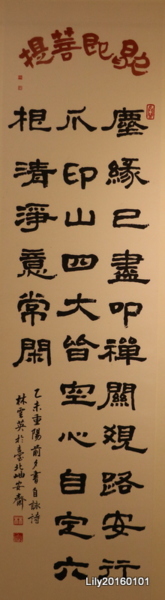 即菩提
塵緣已盡叩禪關覓路安行
爪印山四大皆空心自定六
根清淨意常閑
乙未重陽前夕書自詠詩
林雲英於臺北岫安齋
Lily20160101